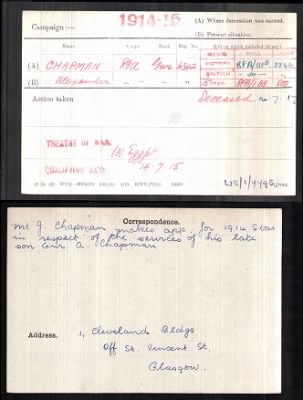 Campaign :— 1914-15
(A) Where decoration was earned.
(B) Present situation.
Name Corps Rank Reg. No.
Roll on which included (if any)
MEDAL ROLL
(A) CHAPMAN RFA Gnr
VICTORY RFA/
(B) Alexander
BRITISH do
STAR RFA/
Action taken
Deceased
THEATRE OF WAR
(2) Egypt
QUALIFYING DATE
7.15
Correspondence.
Mr J. Chapman makes app. for 1914 Star
in respect of the services of his late
son Gnr A. Chapman
Address.
1, Cleveland Bldgs
Off St. Vincent St,
Glasgow.